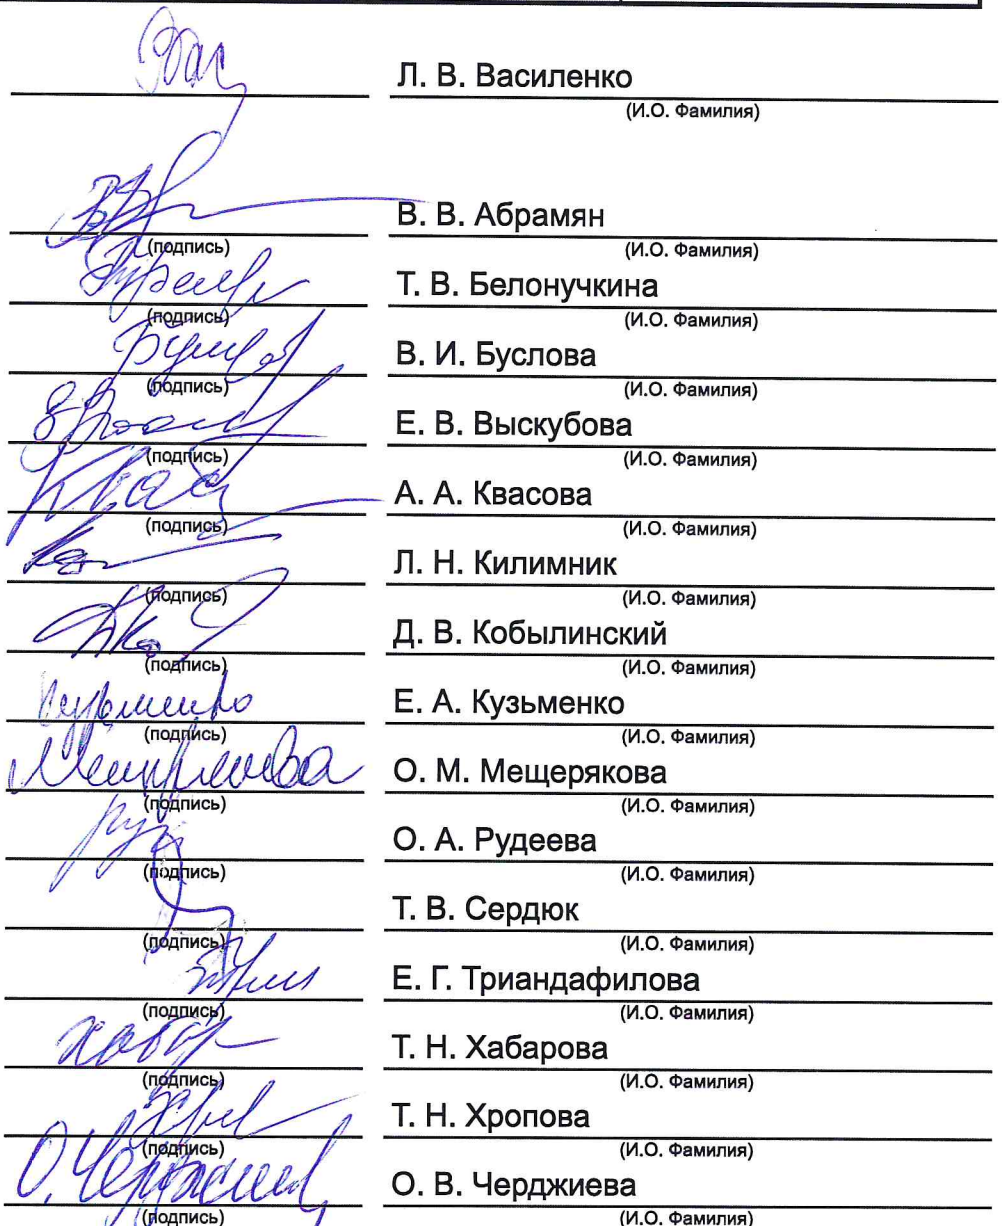 Л. В. Василенко
(И.О. Фамилия)
В. В. Абрамян
(подпись) (И.О. Фамилия)
Т. В. Белонучкина
(подпись) (И.О. Фамилия)
В. И. Буслова
(подпись) (И.О. Фамилия)
Е. В. Выскубова
(подпись) (И.О. Фамилия)
А. А. Квасова
(подпись) (И.О. Фамилия)
Л. Н. Килимник
(подпись) (И.О. Фамилия)
Д. В. Кобылинский
(подпись) (И.О. Фамилия)
Кузьменко Е. А. Кузьменко
(подпись) (И.О. Фамилия)
О. М. Мещерякова
(подпись) (И.О. Фамилия)
О. А. Рудеева
(подпись) (И.О. Фамилия)
Т. В. Сердюк
(подпись) (И.О. Фамилия)
Е. Г. Триандафилова
(подпись) (И.О. Фамилия)
Т. Н. Хабарова
(подпись) (И.О. Фамилия)
Т. Н. Хропова
(подпись) (И.О. Фамилия)
О. В. Черджиева
(подпись) (И.О. Фамилия)